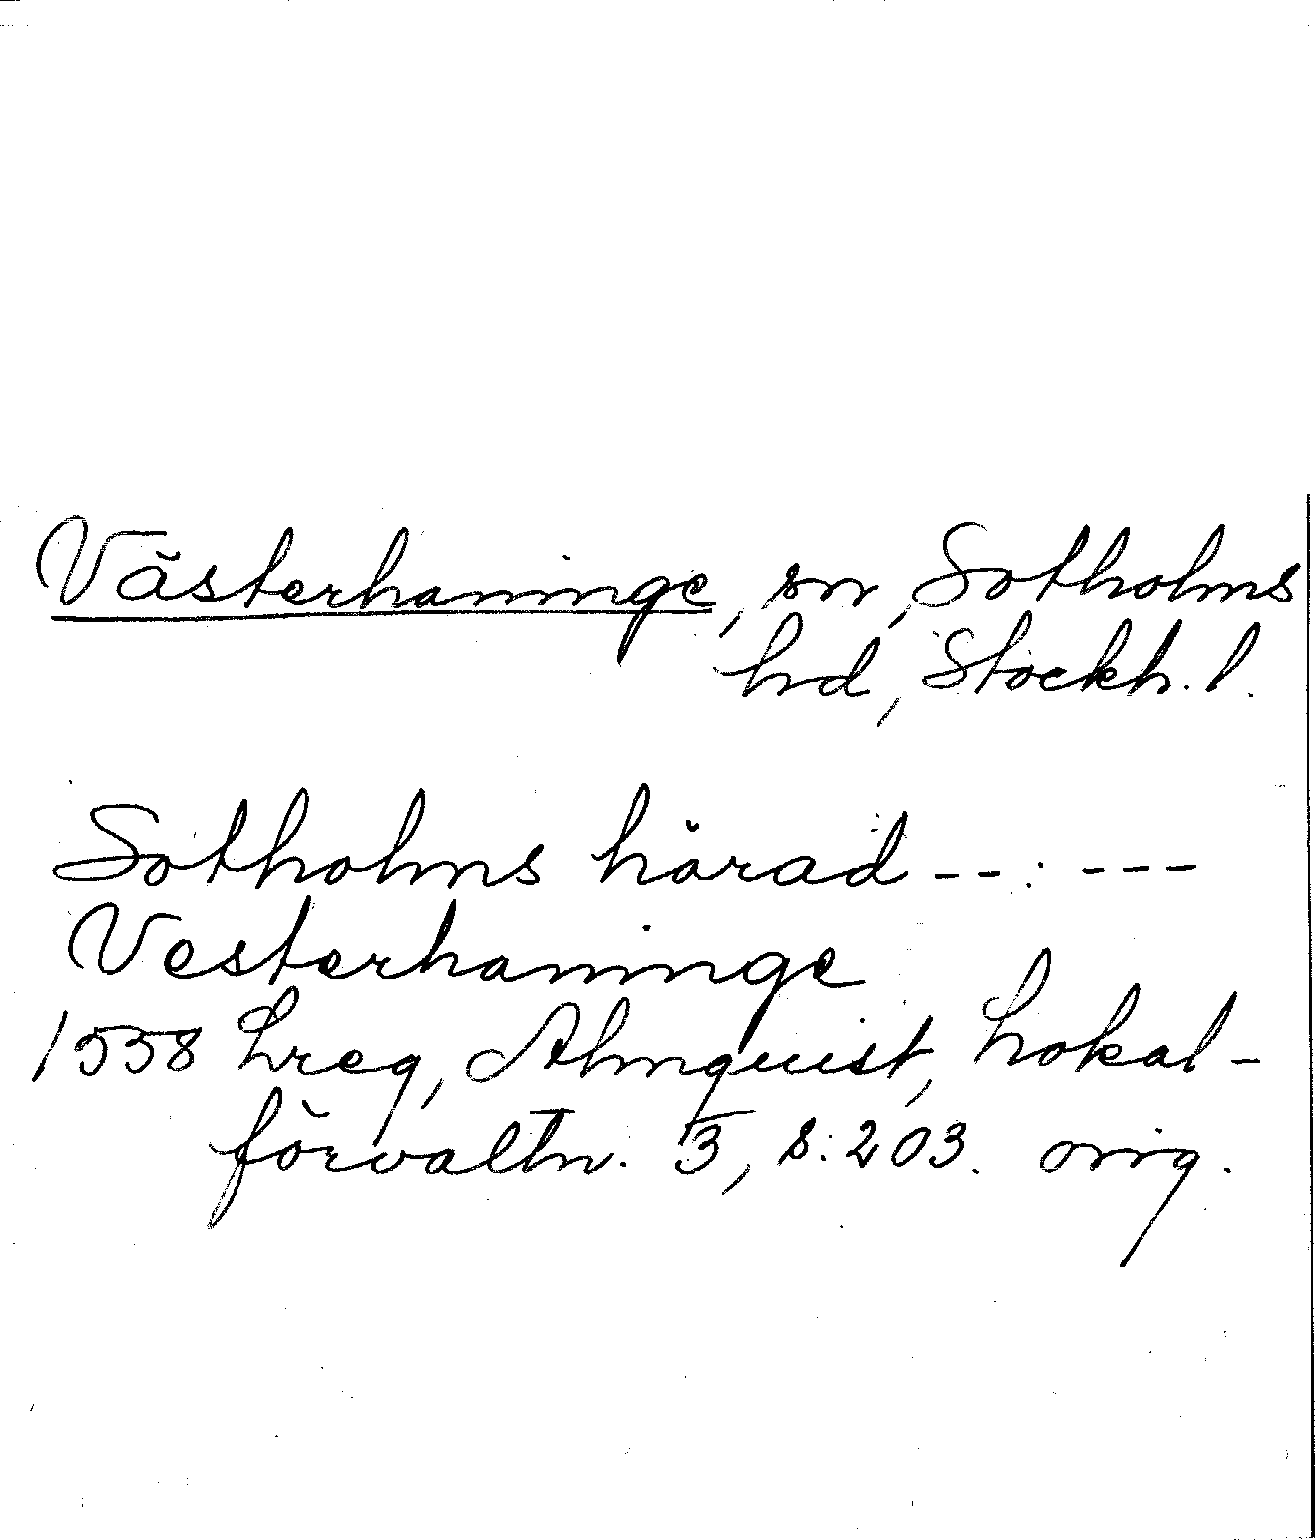 Västerhaninge, sn, Sotholms
hd, Stockh. l.
Sotholms härad -- : ---
Vesterhaninge
1558 Lreg, Almquist, Lokal-
förvaltn. 3, s. 203. orig.